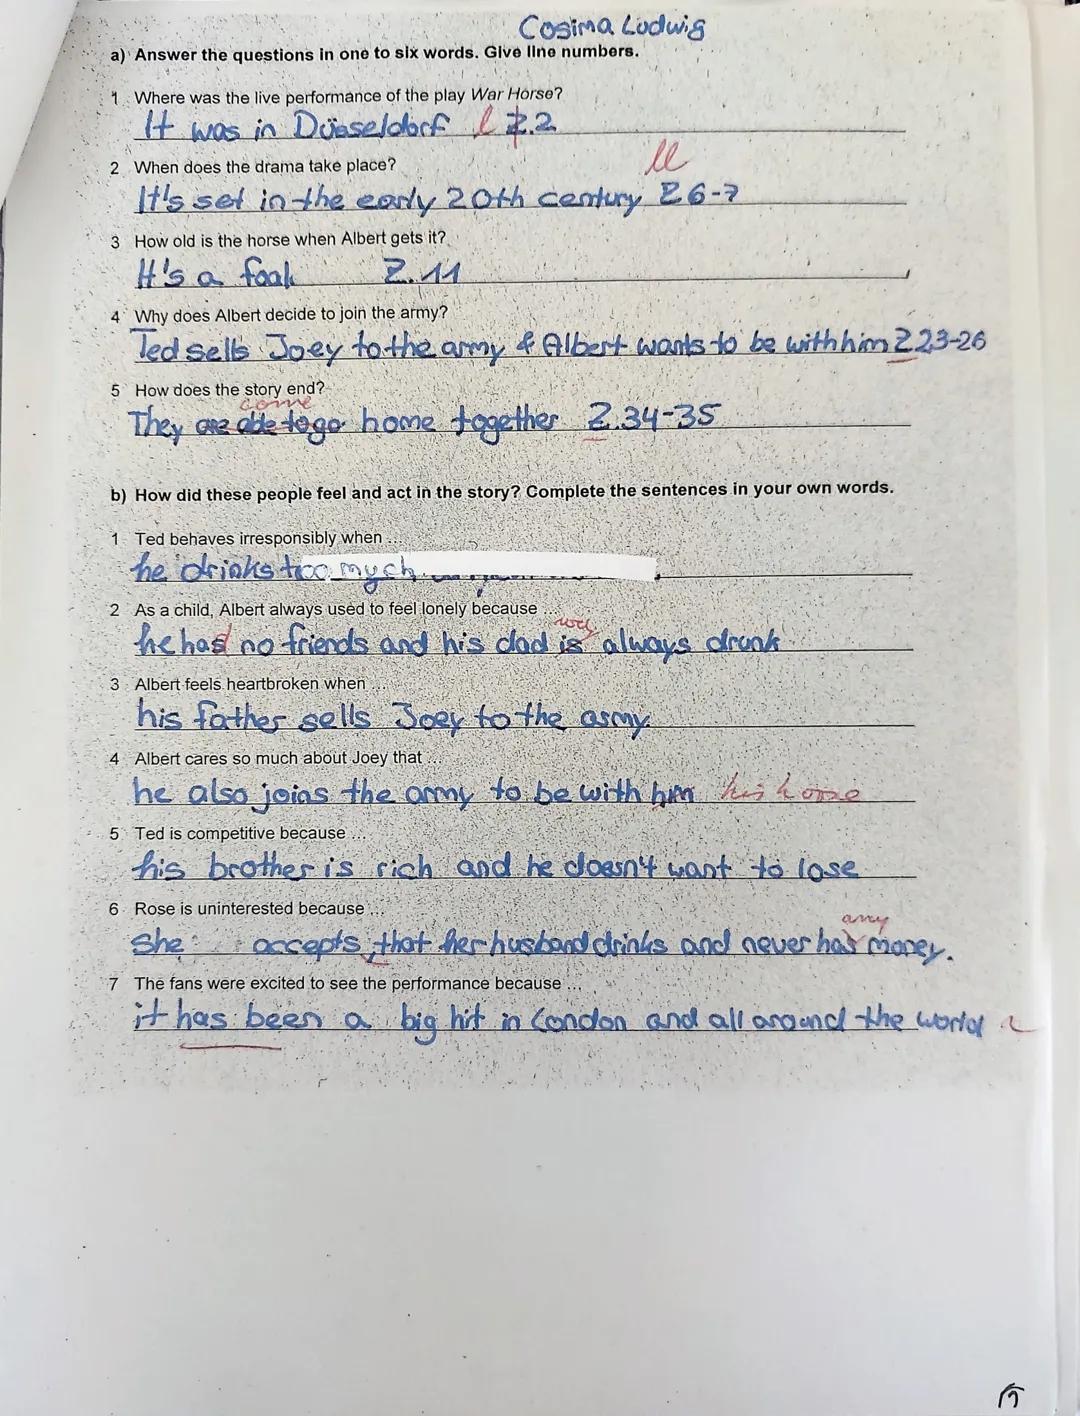 Cosima Ludwig
a) Answer the questions in one to six words. Give line numbers.
1 Where was the live performance of the play War Horse?
It was in Düsseldorf l Z.2
2 When does the drama take place?
ll
It's set in the early 20th century Z 6-7
3 How old is the horse when Albert gets it?
It's a foal Z. 11
4 Why does Albert decide to join the army?
Ted sells Joey to the army & Albert wants to be with him Z 23-26
5 How does the story end?
come
They are able to go home together Z.34-35
b) How did these people feel and act in the story? Complete the sentences in your own words.
1 Ted behaves irresponsibly when ...
he drinks too much.
2 As a child, Albert always used to feel lonely because ...
was
he had no friends and his dad is always drunk
3 Albert feels heartbroken when ...
his father sells Joey to the army.
4 Albert cares so much about Joey that ...
he also joins the army to be with him his horse
5 Ted is competitive because ...
his brother is rich and he doesn't want to lose
6 Rose is uninterested because ...
any
she accepts, that her husband drinks and never has money.
7 The fans were excited to see the performance because ...
it has been a big hit in London and all around the world